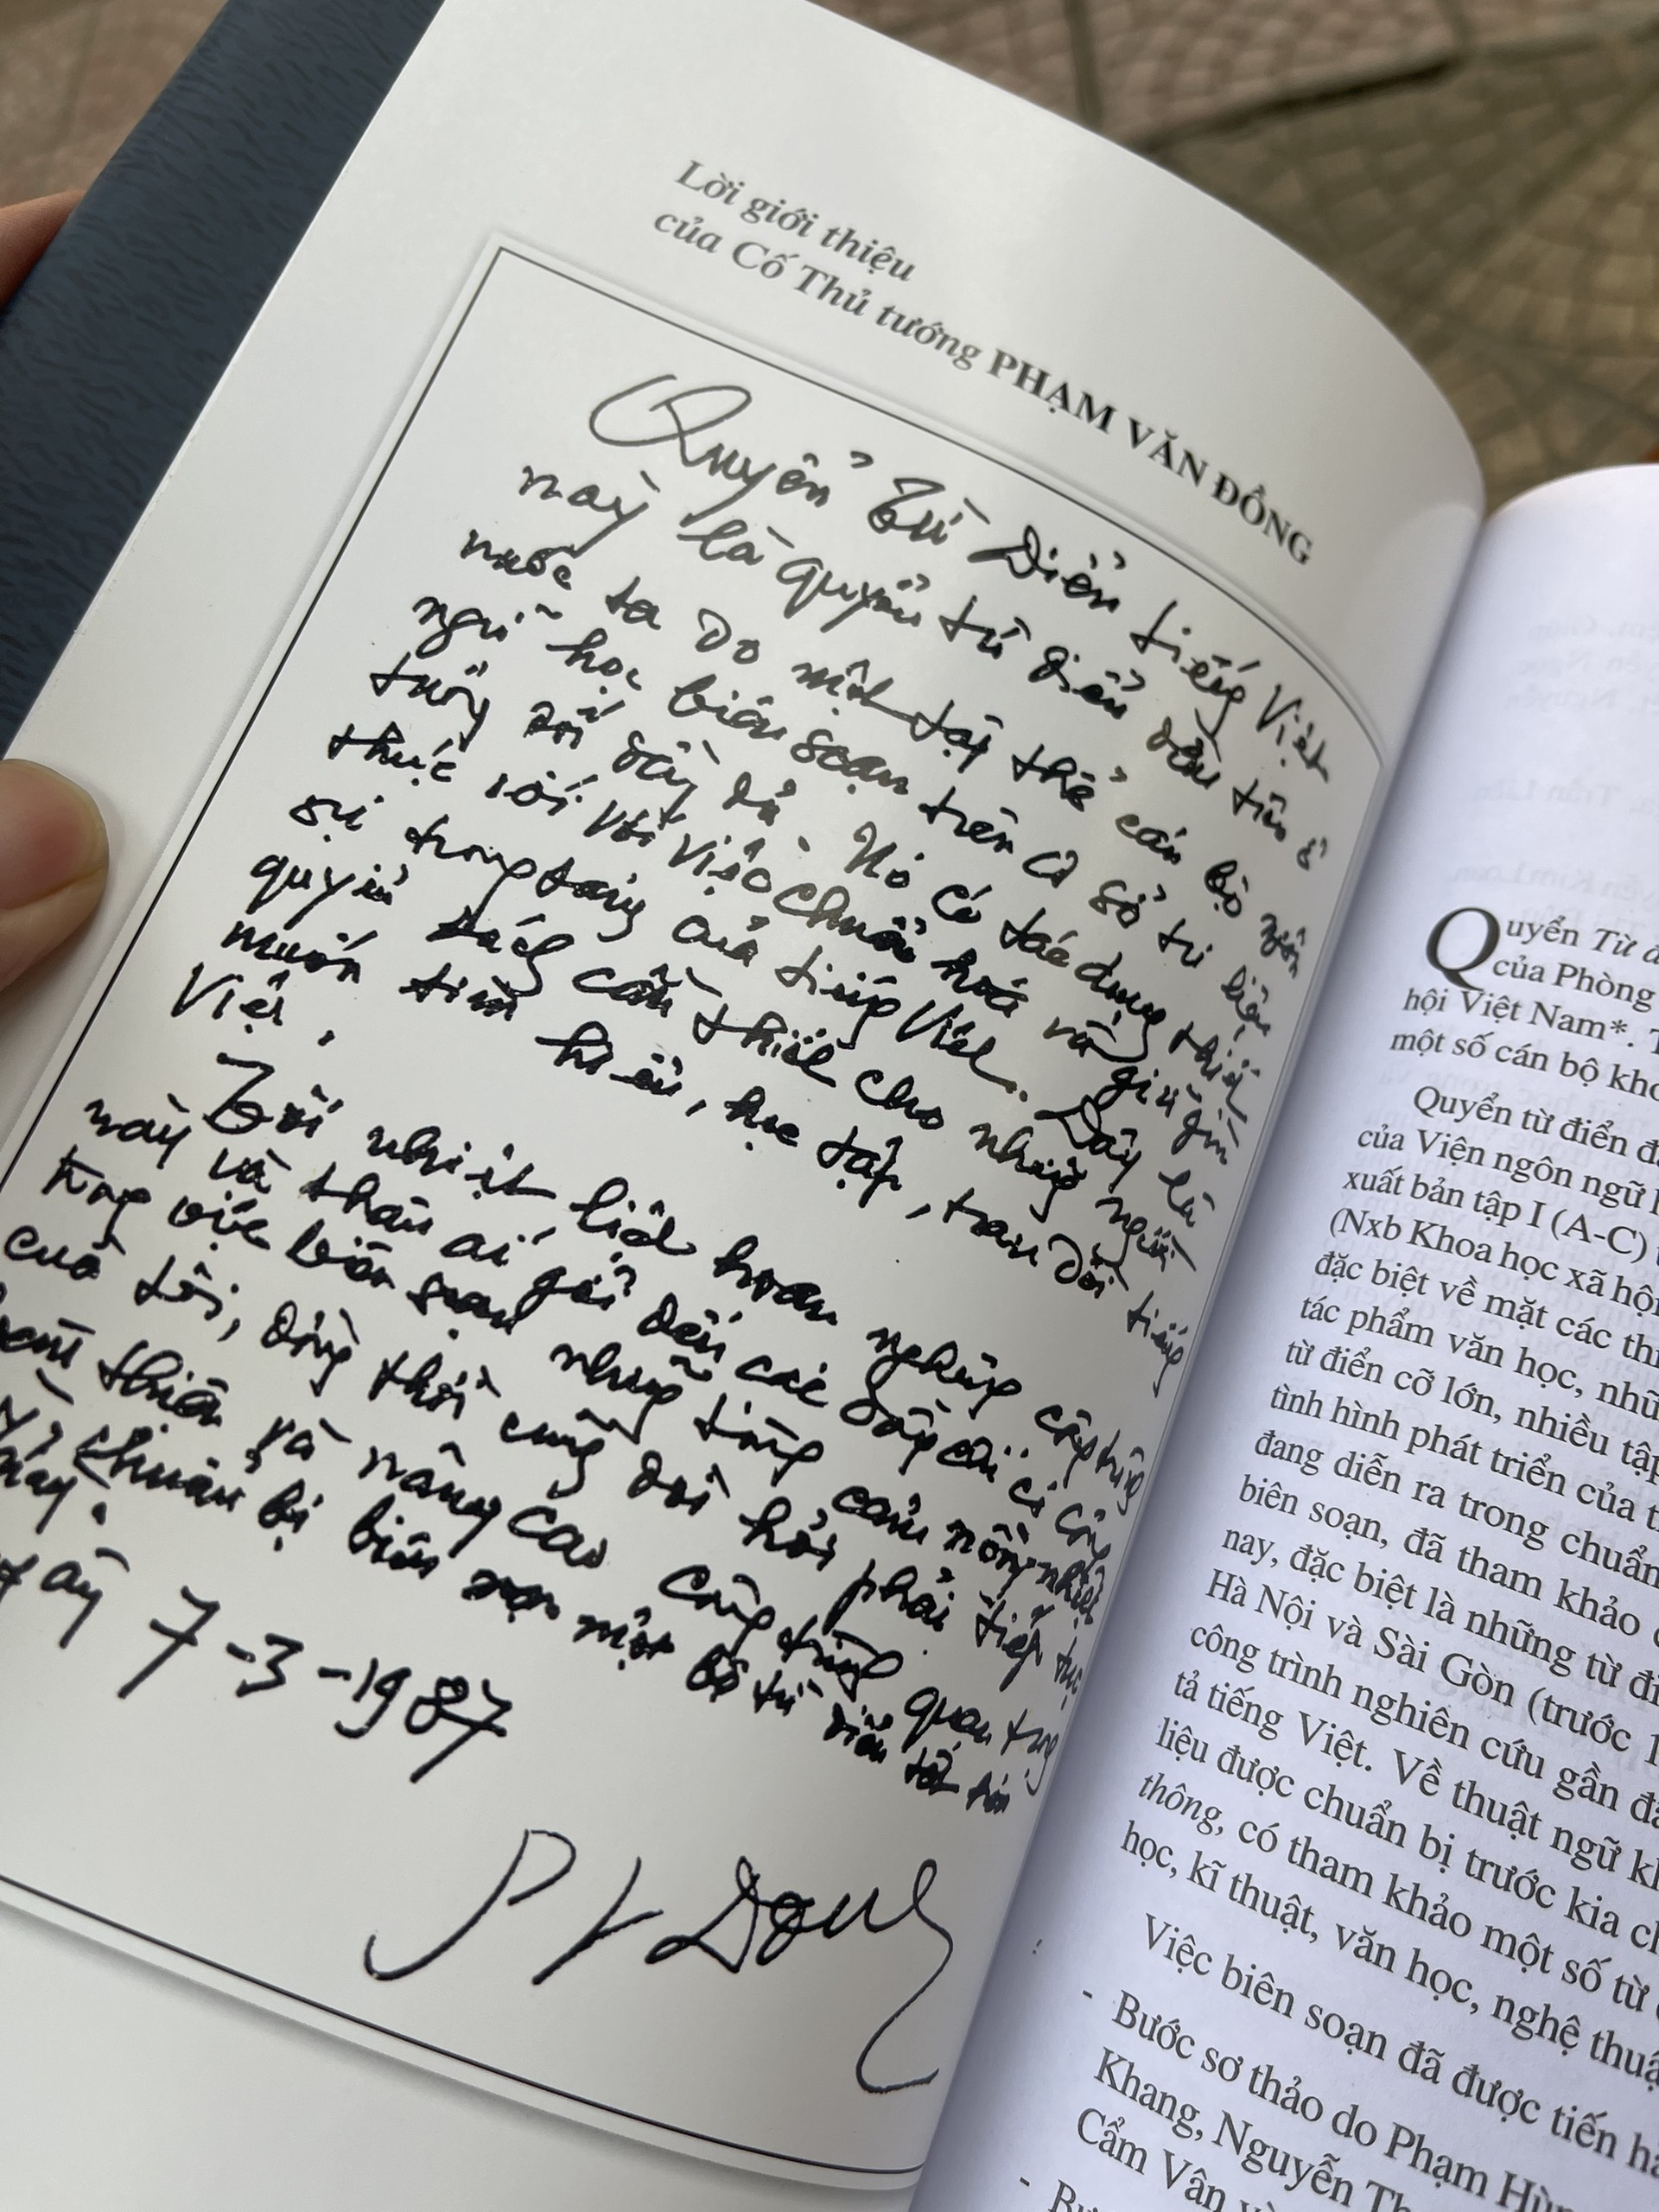 Lời giới thiệu
của Cố Thủ tướng PHẠM VĂN ĐỒNG
Quyển Từ Điển tiếng Việt
này là quyển từ điển đầu tiên ở
nước ta do một tập thể cán bộ ngôn
ngữ học biên soạn trên cơ sở tư liệu
tương đối đầy đủ. Nó có tác dụng thiết
thực đối với việc chuẩn hoá và giữ gìn
sự trong sáng của tiếng Việt. Đây là
quyển sách cần thiết cho những người
muốn tìm hiểu, học tập, trau dồi tiếng
Việt.
Tôi nhiệt liệt hoan nghênh công trình
này và thân ái gửi đến các đồng chí có công
trong việc biên soạn những tình cảm nồng nhiệt
của tôi, đồng thời cũng đòi hỏi phải tiếp tục
thiện và nâng cao công trình quan trọng
chuẩn bị biên soạn một bộ từ điển tốt hơn
nay.
7-3-1987
PVĐồng
Quyển Từ đ
của Phòng
hội Việt Nam*. T
một số cán bộ kho
Quyển từ điển đ
của Viện ngôn ngữ h
xuất bản tập I (A-C) t
(Nxb Khoa học xã hội
đặc biệt về mặt các th
tác phẩm văn học, nhữ
từ điển cỡ lớn, nhiều tập
tình hình phát triển của t
đang diễn ra trong chuẩn
biên soạn, đã tham khảo
nay, đặc biệt là những từ đi
Hà Nội và Sài Gòn (trước 1
công trình nghiên cứu gần đ
tả tiếng Việt. Về thuật ngữ k
liệu được chuẩn bị trước kia ch
thông, có tham khảo một số từ
học, kĩ thuật, văn học, nghệ thuậ
Việc biên soạn đã được tiến h
- Bước sơ thảo do Phạm Hùn
Khang, Nguyễn Th
Cẩm Vân v
- Bư